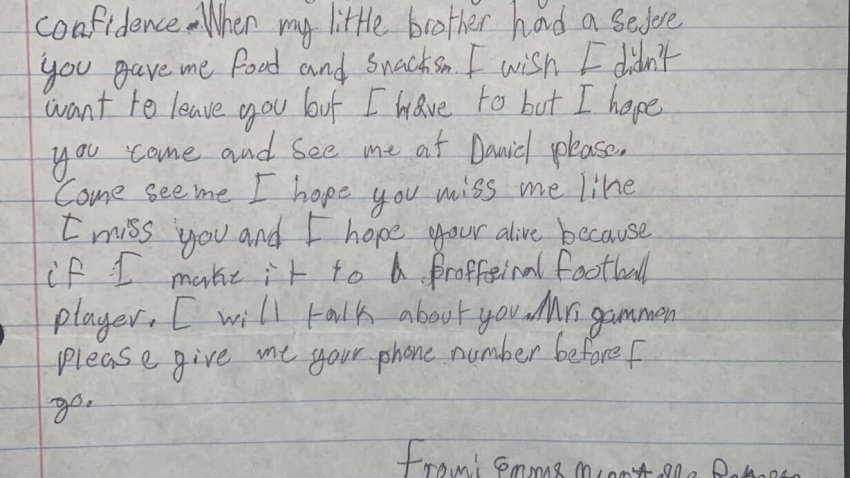 confidence. When my little brother had a sedere
you gave me food and snacks. I wish I didn't
want to leave you but I have to but I hope
you come and see me at Daniel please.
Come see me I hope you miss me like
I miss you and I hope your alive because
if I make it to a proffeinal football
player. I will talk about you. Mr. gammen
please give me your phone number before I
go.
From: